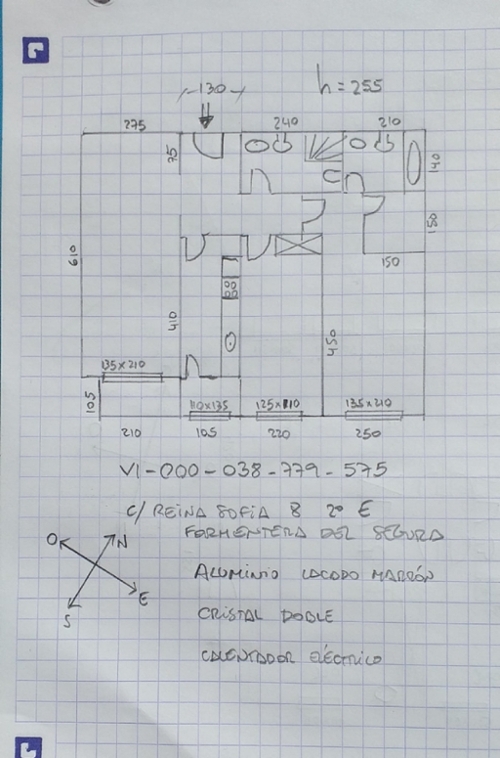 130
h = 255
275
240
210
75
140
150
150
610
410
450
135x210
105
110x135
125x110
135x210
210
105
220
250
VI-000-038-779-575
C/ REINA SOFIA 8 2º E
FORMENTERA DEL SEGURA
ALUMINIO LACADO MARRÓN
CRISTAL DOBLE
CALENTADOR ELÉCTRICO
O
N
S
E